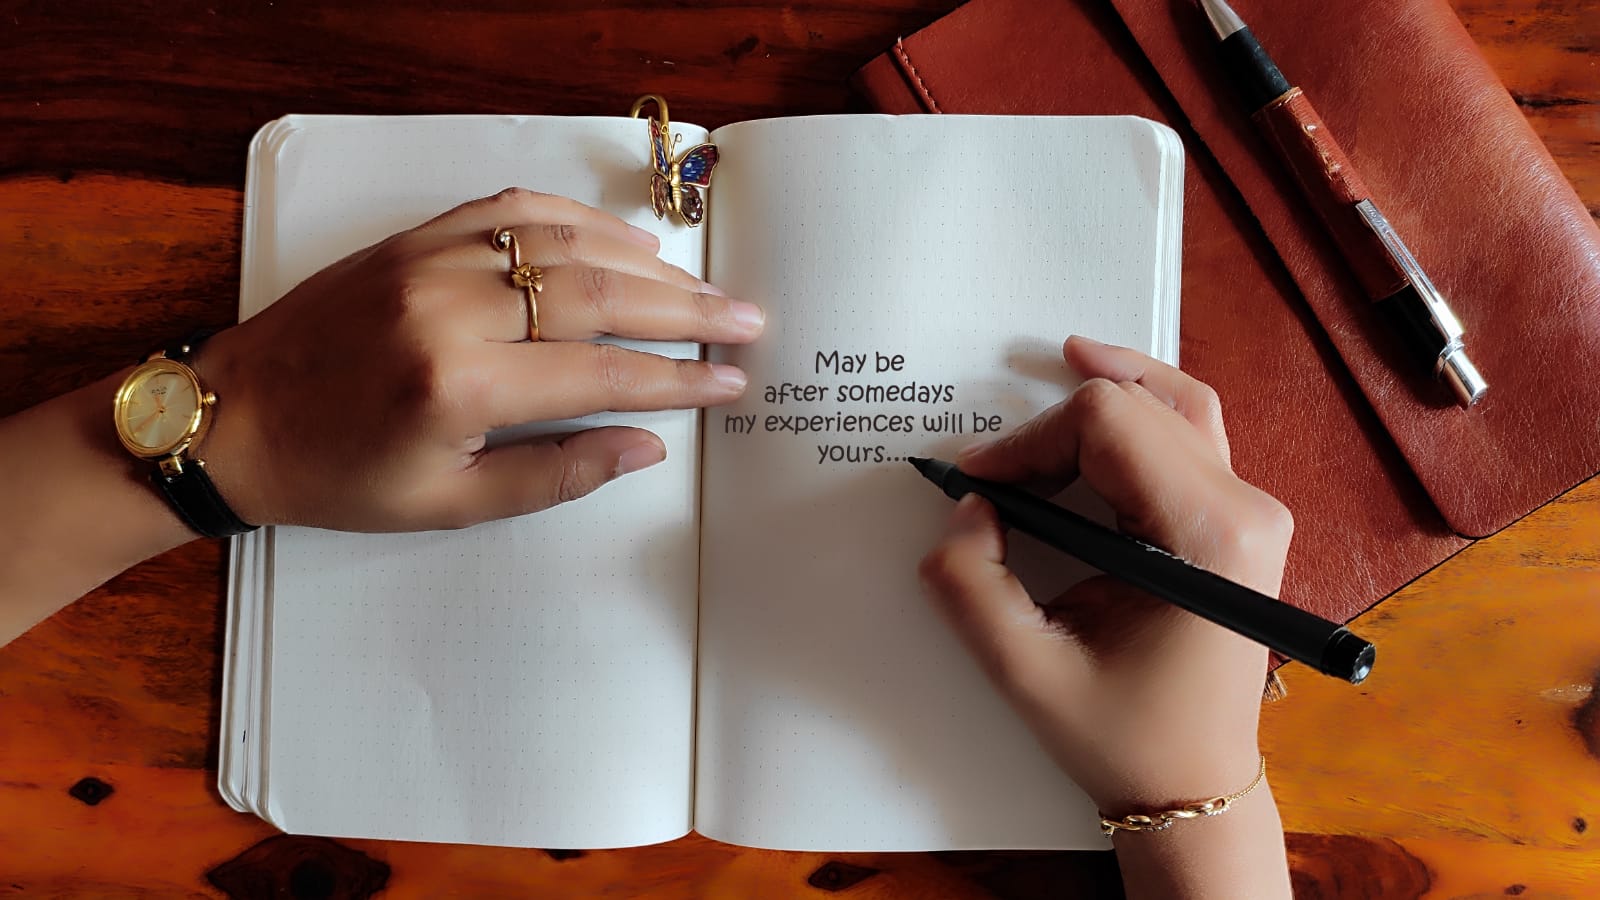 May be
after somedays
my experiences will be
yours....